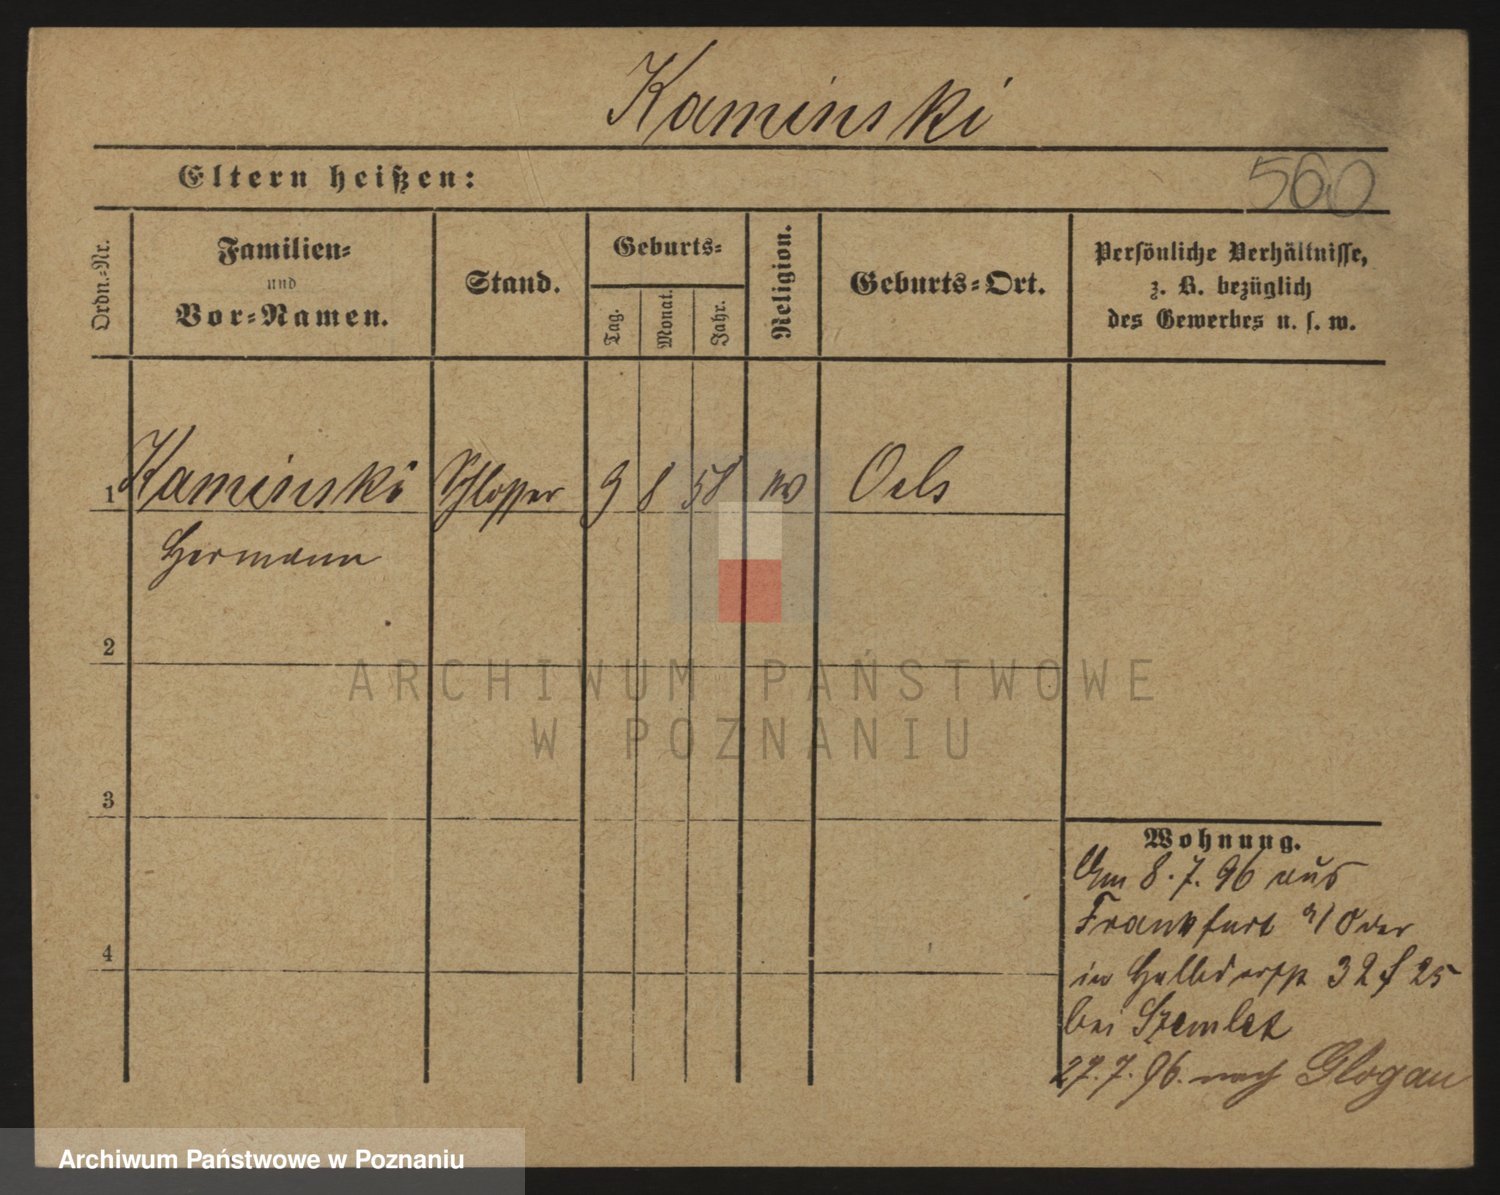 Kaminski
Eltern heißen:
560
Ordn.-Nr.
Familien-
und
Vor-Namen.
Stand.
Geburts-
Tag.
Monat.
Jahr.
Religion.
Geburts-Ort.
Persönliche Verhältnisse,
z. B. bezüglich
des Gewerbes u. s. w.
1 Kaminski Schlosser 9 8 58 Oels
Hermann
2
ARCHIWUM PAŃSTWOWE
W POZNANIU
3
Wohnung.
Am 8.7.96 aus
Frankfurt a/Oder
in Halbdorfstr 32 f 25
4
bei
27.7.96. nach Glogau
Archiwum Państwowe w Poznaniu